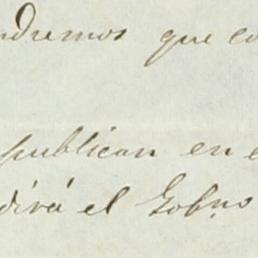 ndremos que co
publican en e
dirá el Gobno